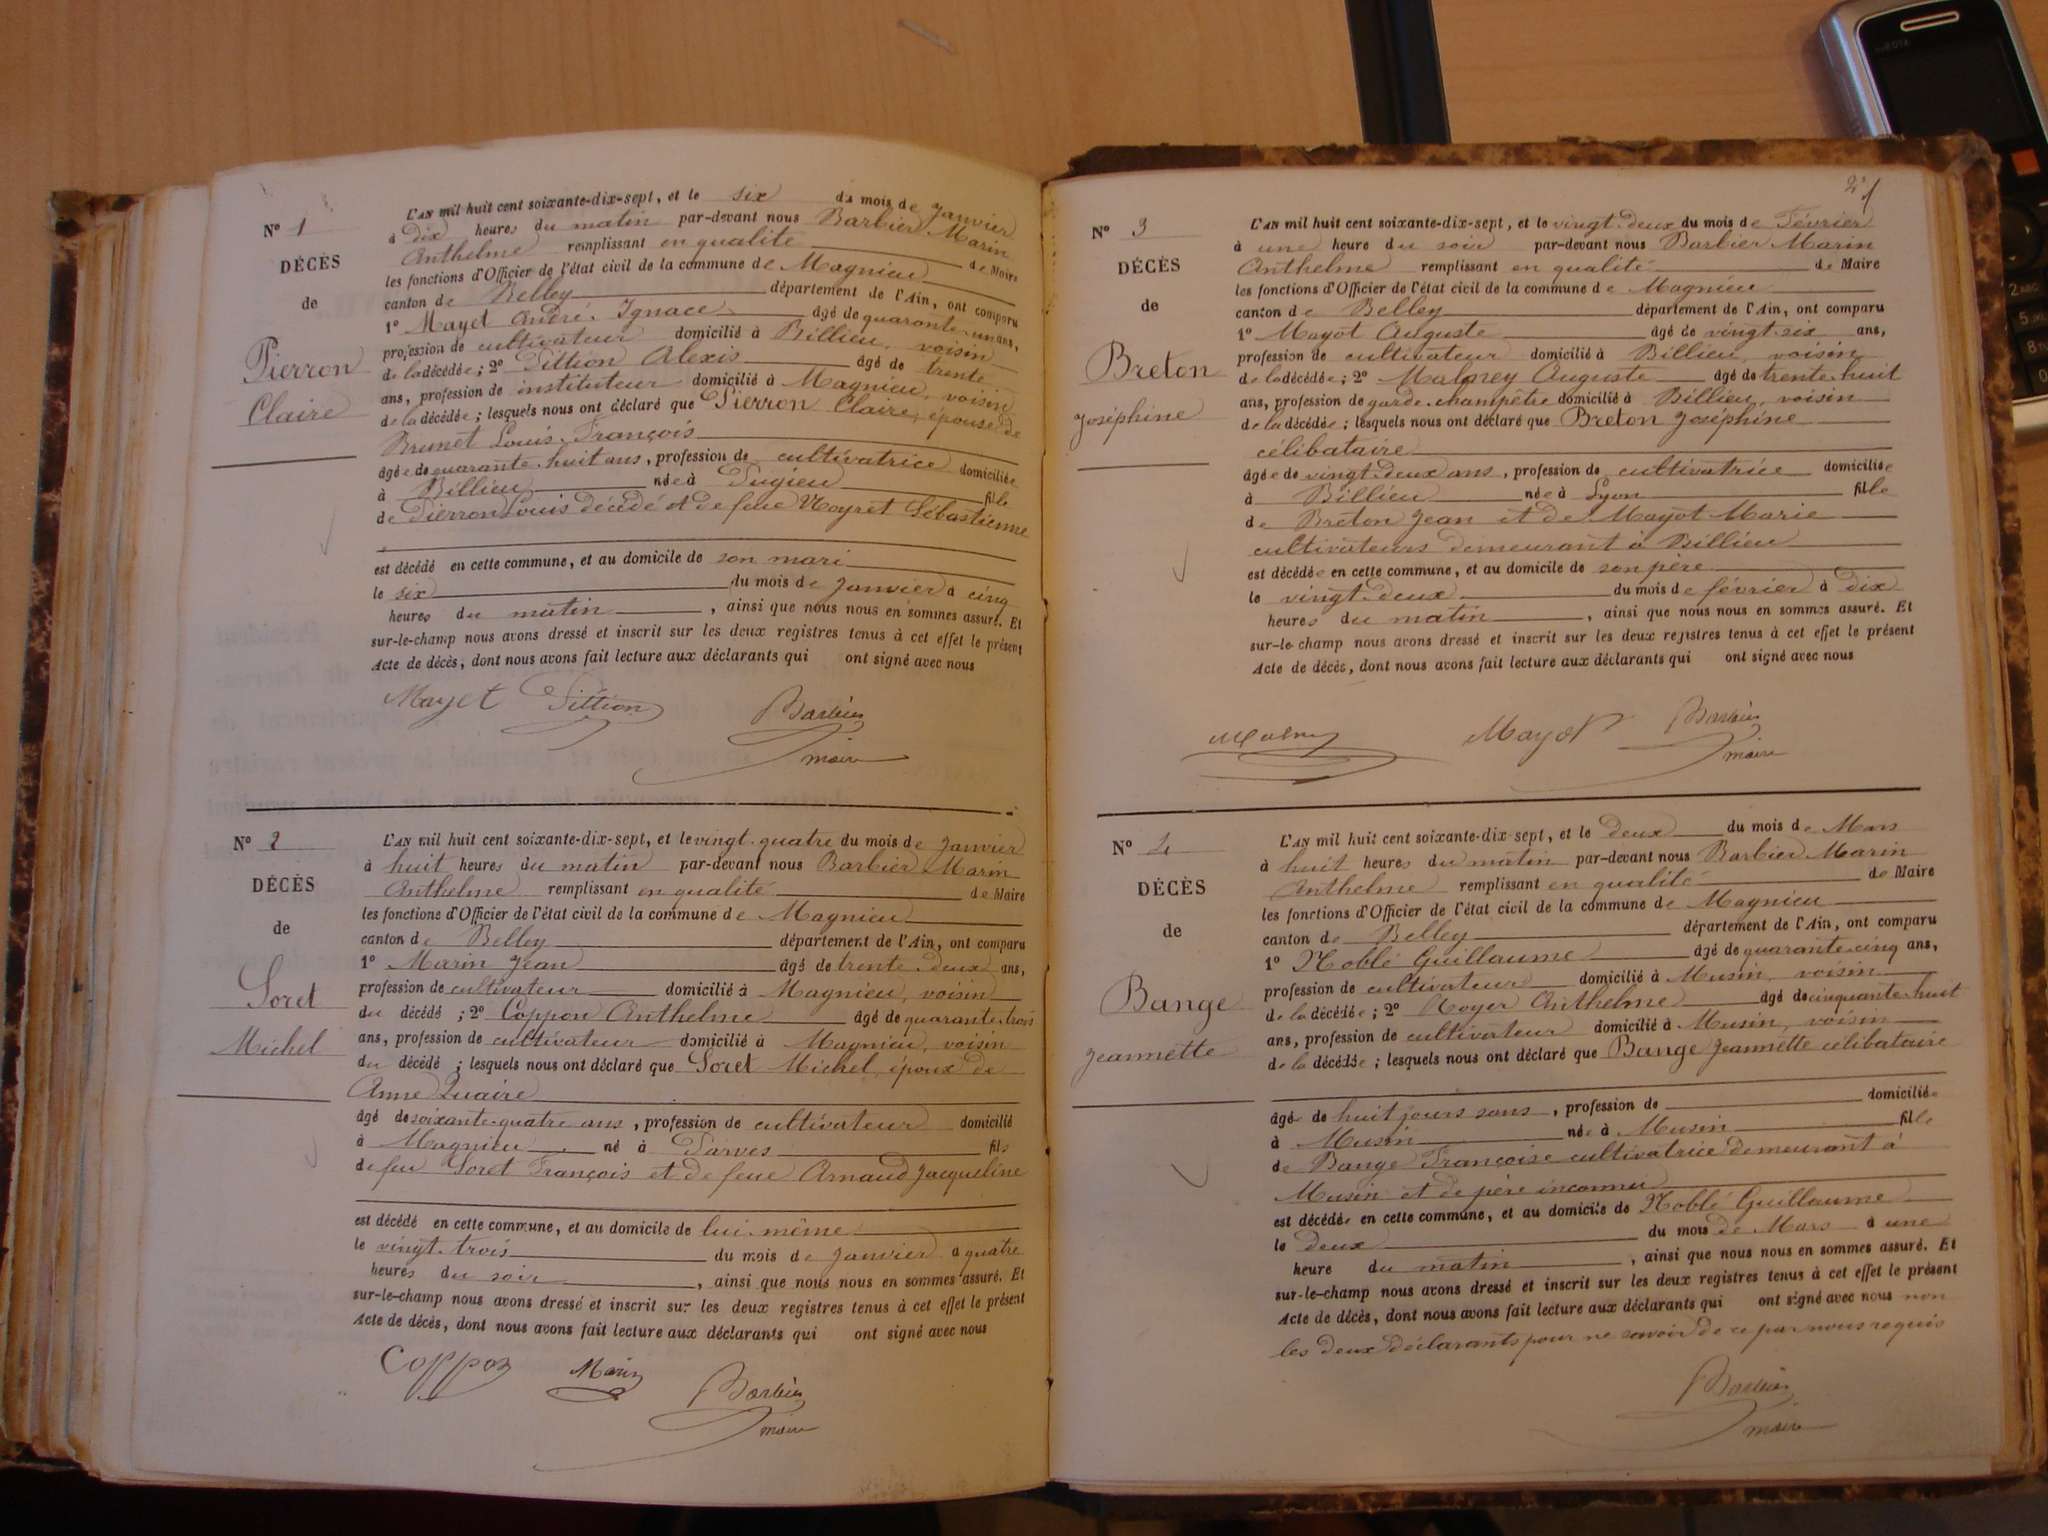 Nº 1
DÉCÈS
de
Pierron
Claire
L'AN mil huit cent soixante-dix-sept, et le six du mois de janvier
à dix heures du matin par-devant nous Barbier Marin
Anthelme remplissant en qualité de Maire
les fonctions d'Officier de l'état civil de la commune de Magnieu
canton de Belley département de l'Ain, ont comparu
1º Mayet André Ignace âgé de quarante-un ans,
profession de cultivateur domicilié à Billieu, voisin
de la décédée; 2º Pittion Alexis âgé de trente
ans, profession de instituteur domicilié à Magnieu, voisin
de la décédée; lesquels nous ont déclaré que Pierron Claire, épouse de
Brunet Louis François
âgée de quarante-huit ans, profession de cultivatrice domiciliée
à Billieu née à Pugieu fille
de Pierron Louis décédé et de feue Noyret Sébastienne
est décédé en cette commune, et au domicile de son mari
le six du mois de janvier à cinq
heures du matin, ainsi que nous nous en sommes assuré. Et
sur-le-champ nous avons dressé et inscrit sur les deux registres tenus à cet effet le présent
Acte de décès, dont nous avons fait lecture aux déclarants qui ont signé avec nous
Mayet Pittion Barbier
maire
Nº 2
DÉCÈS
de
Soret
Michel
L'AN mil huit cent soixante-dix-sept, et le vingt-quatre du mois de janvier
à huit heures du matin par-devant nous Barbier Marin
Anthelme remplissant en qualité de Maire
les fonctions d'Officier de l'état civil de la commune de Magnieu
canton de Belley département de l'Ain, ont comparu
1º Marin Jean âgé de trente-deux ans,
profession de cultivateur domicilié à Magnieu, voisin
du décédé; 2º Coppon Anthelme âgé de quarante-trois
ans, profession de cultivateur domicilié à Magnieu, voisin
du décédé; lesquels nous ont déclaré que Soret Michel, époux de
Anne Quaire
âgé de soixante-quatre ans, profession de cultivateur domicilié
à Magnieu né à Parves fils
de feu Soret François et de feue Arnaud Jacqueline
est décédé en cette commune, et au domicile de lui-même
le vingt-trois du mois de janvier à quatre
heures du soir, ainsi que nous nous en sommes assuré. Et
sur-le-champ nous avons dressé et inscrit sur les deux registres tenus à cet effet le présent
Acte de décès, dont nous avons fait lecture aux déclarants qui ont signé avec nous
Coppon Marin Barbier
maire
Nº 3
DÉCÈS
de
Breton
Joséphine
L'AN mil huit cent soixante-dix-sept, et le vingt-deux du mois de Février
à une heure du soir par-devant nous Barbier Marin
Anthelme remplissant en qualité de Maire
les fonctions d'Officier de l'état civil de la commune de Magnieu
canton de Belley département de l'Ain, ont comparu
1º Mayot Auguste âgé de vingt-six ans,
profession de cultivateur domicilié à Billieu, voisin
de la décédée; 2º Malprey Auguste âgé de trente-huit
ans, profession de garde-champêtre domicilié à Billieu, voisin
de la décédée; lesquels nous ont déclaré que Breton Joséphine
célibataire
âgée de vingt-deux ans, profession de cultivatrice domiciliée
à Billieu née à Lyon fille
de Breton Jean et de Mayot Marie
cultivateurs demeurant à Billieu
est décédée en cette commune, et au domicile de son père
le vingt-deux du mois de février à dix
heures du matin, ainsi que nous nous en sommes assuré. Et
sur-le-champ nous avons dressé et inscrit sur les deux registres tenus à cet effet le présent
Acte de décès, dont nous avons fait lecture aux déclarants qui ont signé avec nous
Mayot Barbier
maire
Nº 4
DÉCÈS
de
Bange
Jeannette
L'AN mil huit cent soixante-dix-sept, et le deux du mois de Mars
à huit heures du matin par-devant nous Barbier Marin
Anthelme remplissant en qualité de Maire
les fonctions d'Officier de l'état civil de la commune de Magnieu
canton de Belley département de l'Ain, ont comparu
1º Noblé Guillaume âgé de quarante-cinq ans,
profession de cultivateur domicilié à Musin, voisin
de la décédée; 2º Royer Anthelme âgé de cinquante-huit
ans, profession de cultivateur domicilié à Musin, voisin
de la décédée; lesquels nous ont déclaré que Bange Jeannette célibataire
âgé de huit jours sans, profession de domiciliée
à Musin née à Musin fille
de Bange Françoise cultivatrice demeurant à
Musin et de père inconnu
est décédée en cette commune, et au domicile de Noblé Guillaume
le deux du mois de Mars à une
heure du matin, ainsi que nous nous en sommes assuré. Et
sur-le-champ nous avons dressé et inscrit sur les deux registres tenus à cet effet le présent
Acte de décès, dont nous avons fait lecture aux déclarants qui ont signé avec nous non
les deux déclarants pour ne savoir de ce par nous requis
Barbier
maire